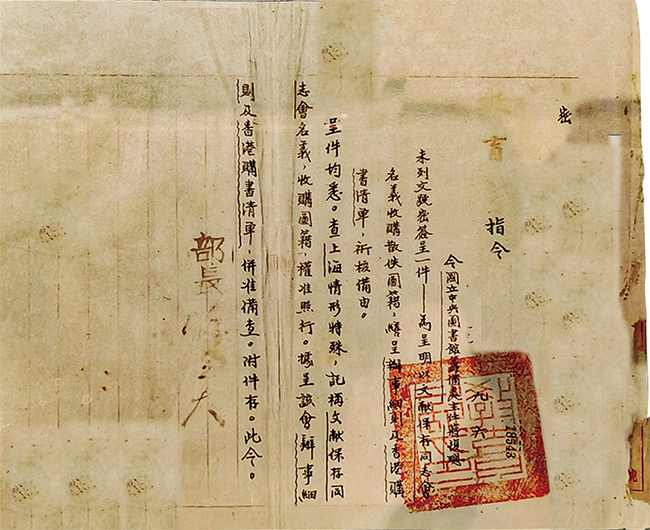 密
育
指令
令國立中央圖書館籌備處主任蔣復璁
未列文號密簽呈一件——為呈明以文献保存同志會
名義收購散佚圖籍，繕呈辦事細則及香港購
書清單，祈核備由。
呈件均悉。查上海情形特殊，託稱文献保存同
志會名義，收購圖籍，權准照行。據呈該會辦事細
則及香港購書清單，併准備查。附件存。此令。
部長